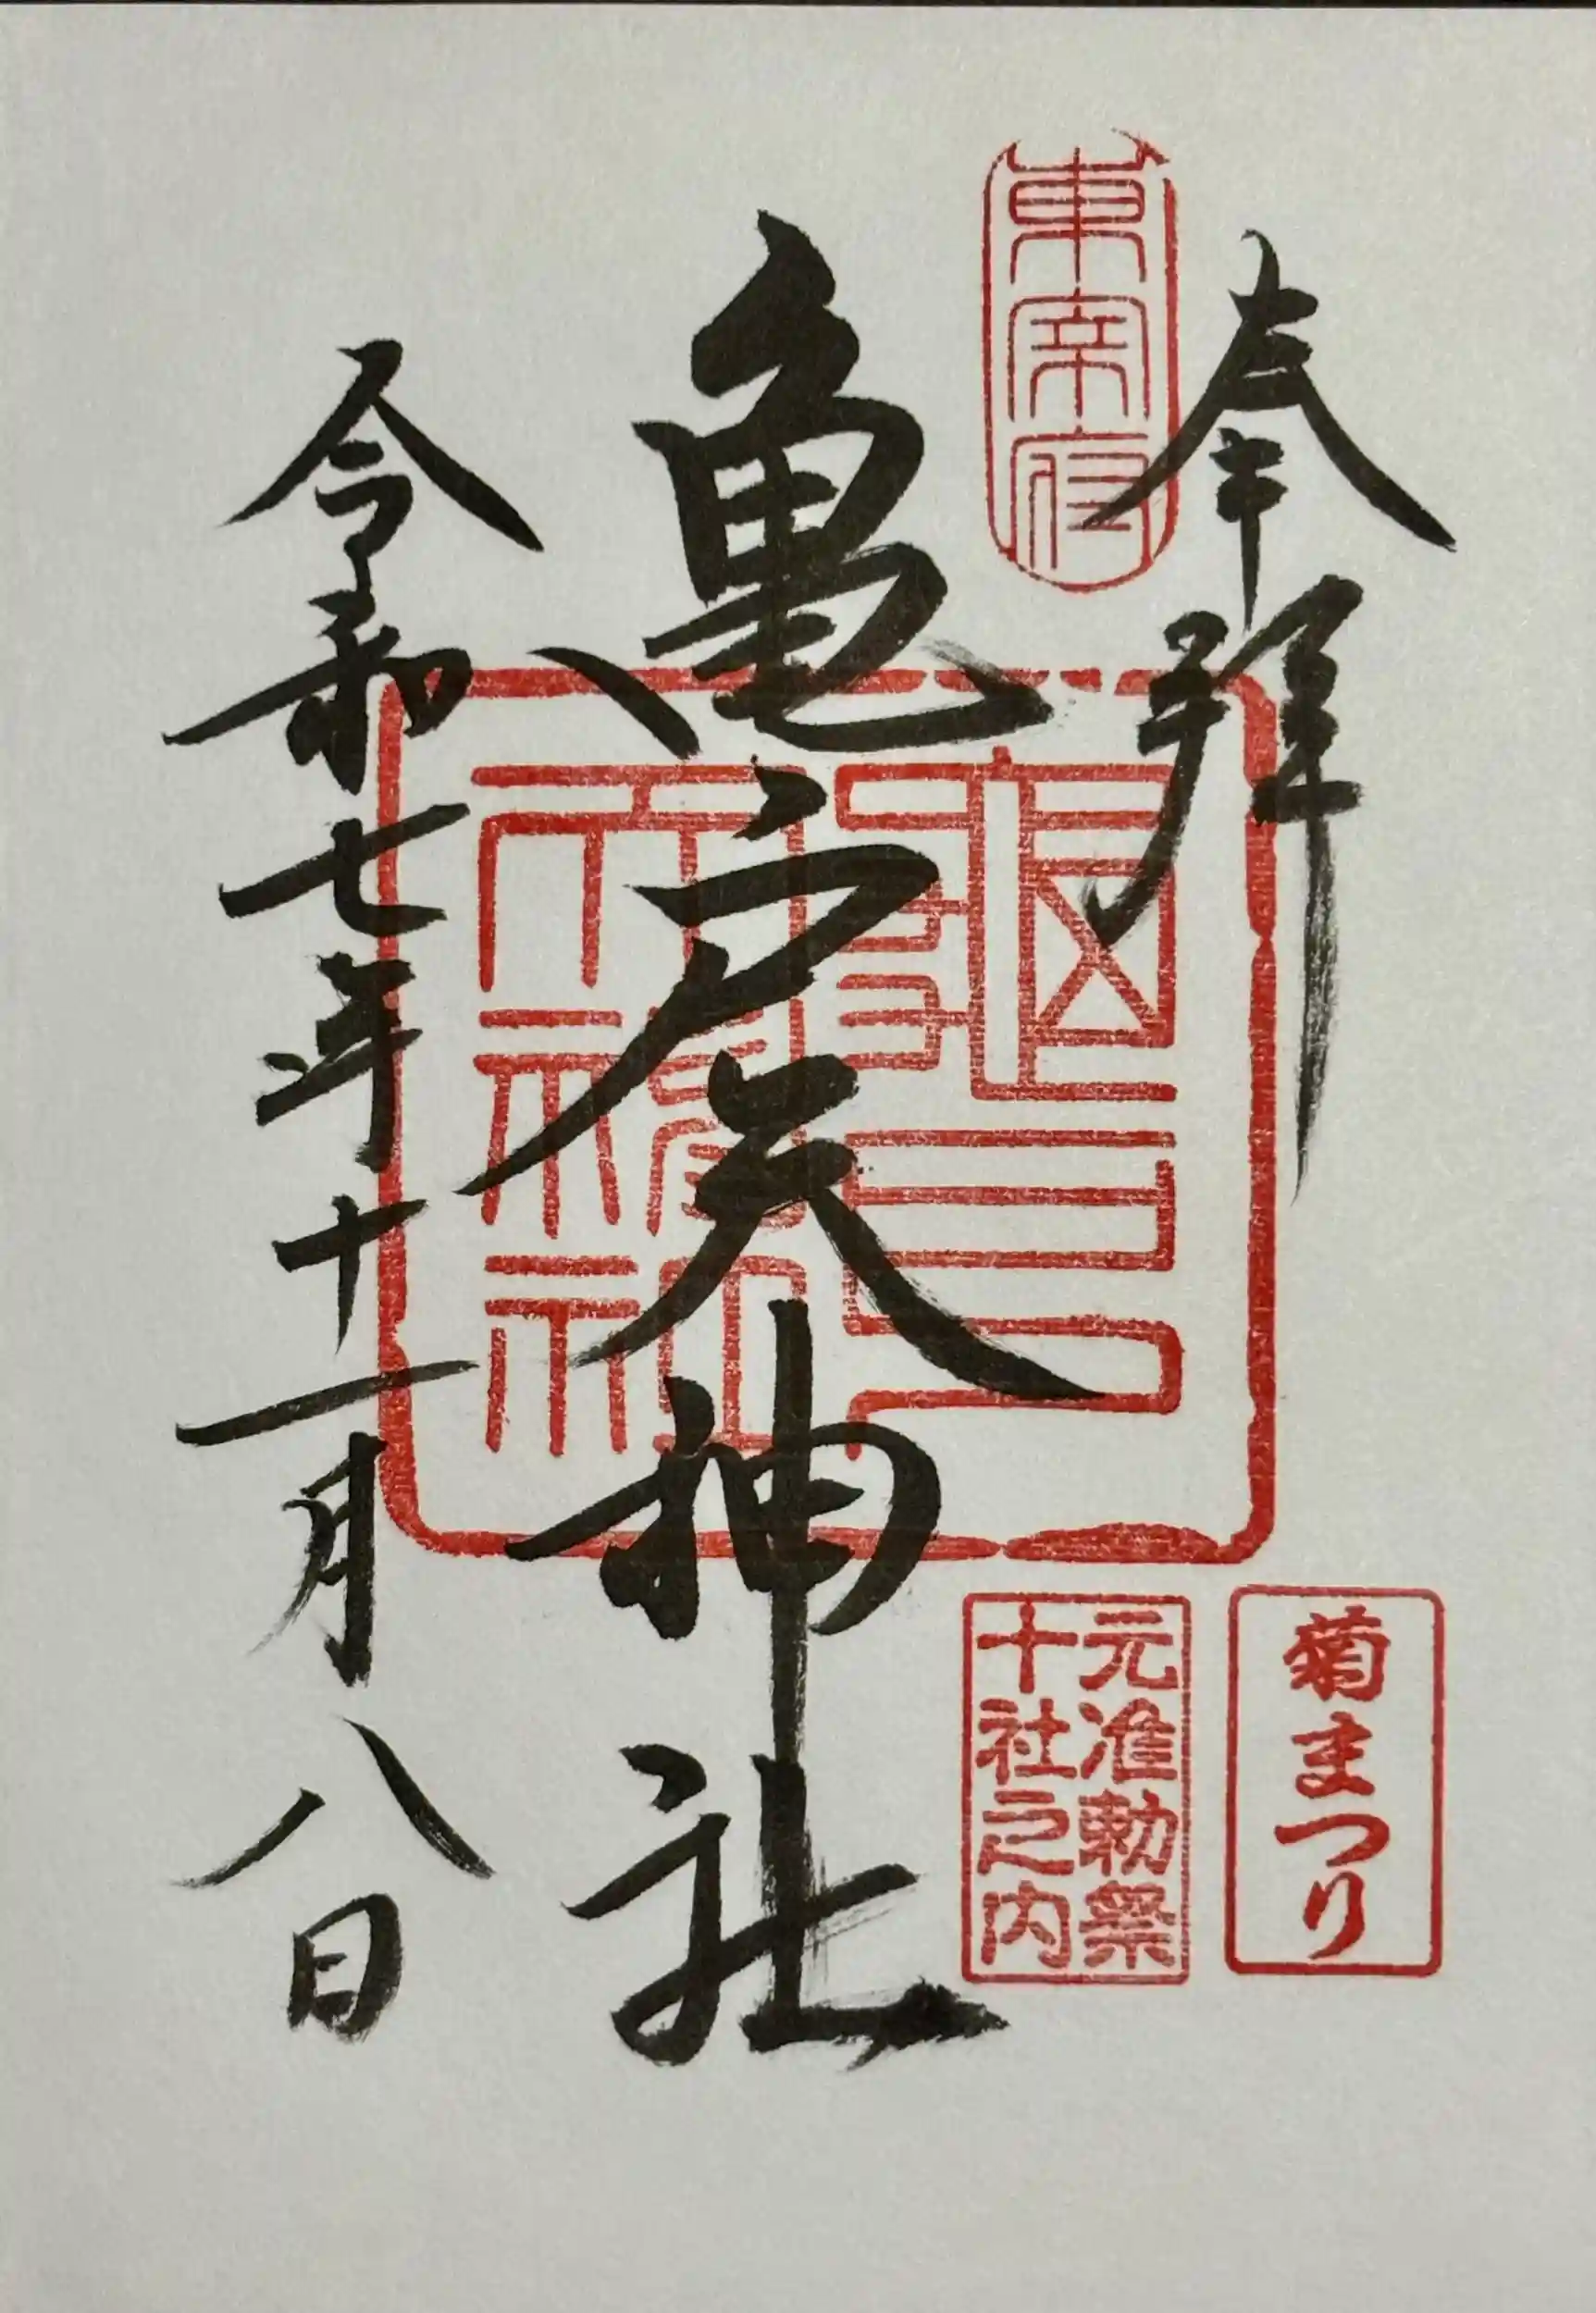 奉拝
東宰府
亀戸天神社
令和七年十一月八日
龜戸
天神社
菊まつり
元准勅祭
十社之内